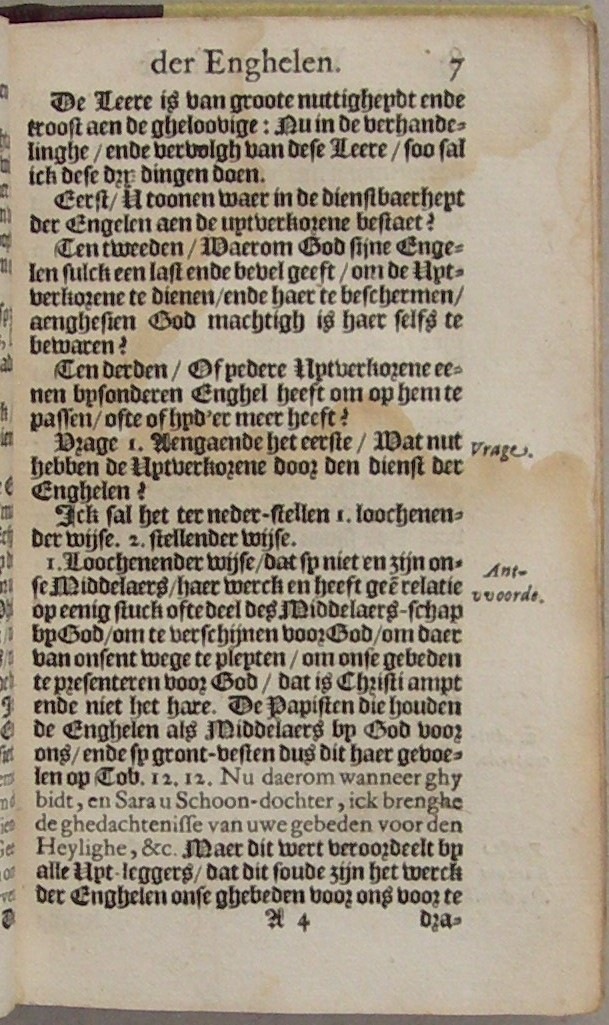 der Enghelen. 7
De Leere is van groote nuttigheydt ende
troost aen de gheloovige : Nu in de verhande-
linghe / ende vervolgh van dese Leere / soo sal
ick dese dry dingen doen.
Eerst / U toonen waer in de dienstbaerheyt
der Engelen aen de uytverkorene bestaet ?
Ten tweeden / Waerom God sijne Enge-
len sulck een last ende bevel geeft / om de Uyt-
verkorene te dienen / ende haer te beschermen /
aenghesien God machtigh is haer selfs te
bewaren ?
Ten derden / Of yedere Uytverkorene ee-
nen bysonderen Enghel heeft om op hem te
passen / ofte of hyd'er meer heeft ?
Vrage 1. Aengaende het eerste / Wat nut
Vrage.
hebben de Uytverkorene door den dienst der
Enghelen ?
Ick sal het ter neder-stellen 1. loochenen-
der wijse. 2. stellender wijse.
1. Loochenender wijse / dat sy niet en zijn on-
Ant-
se Middelaers / haer werck en heeft geē relatie
vvoorde.
op eenig stuck ofte deel des Middelaers-schap
by God / om te verschijnen voor God / om daer
van onsent wege te pleyten / om onse gebeden
te presenteren voor God / dat is Christi ampt
ende niet het hare. De Papisten die houden
de Enghelen als Middelaers by God voor
ons / ende sy gront-vesten dus dit haer gevoe-
len op Tob. 12. 12. Nu daerom wanneer ghy
bidt, en Sara u Schoon-dochter, ick brenghe
de ghedachtenisse van uwe gebeden voor den
Heylighe, &c. Maer dit wert veroordeelt by
alle Uyt-leggers / dat dit soude zijn het werck
der Enghelen onse ghebeden voor ons voor te
A 4 dra-